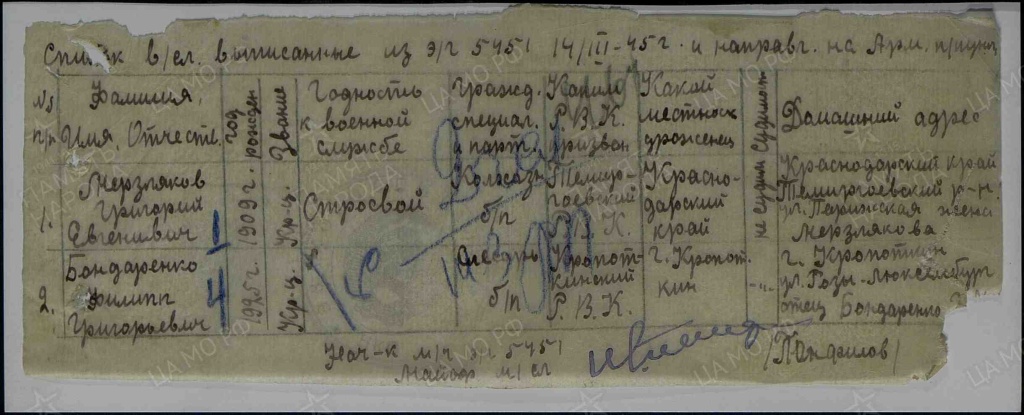 Список в/сл. выписанные из э/г 5451 14/III-45 г. и направл. на Арм. п/пункт
№№ п/п
Фамилия, Имя, Отчеств.
Год рожден
Звание
Годность к военной службе
Гражд. специал. и парт.
Каким Р.В.К. призван
Какой местности уроженец
Судимость
Домашний адрес
1.
Мерзляков Григорий Евгениевич
1909 г.
Кр-ц.
Строевой
б/п
Темиргоевский Р.В.К.
Краснодарский край
не судим
Краснодарский край
Темиргоевский р-н
ул. Парижская жена
Мерзлякова
2.
Бондаренко Филипп Григорьевич
1925 г.
Кр-ц.
Слесарь б/п
Кропоткинский Р.В.К.
г. Кропоткин
-"-
г. Кропоткин
ул. Розы-Люксембург
отец Бондаренко
Нач-к м/ч э/г 5451
Майор м/сл
/Панфилов/
ЦА МО РФ
ПАМЯТЬ НАРОДА